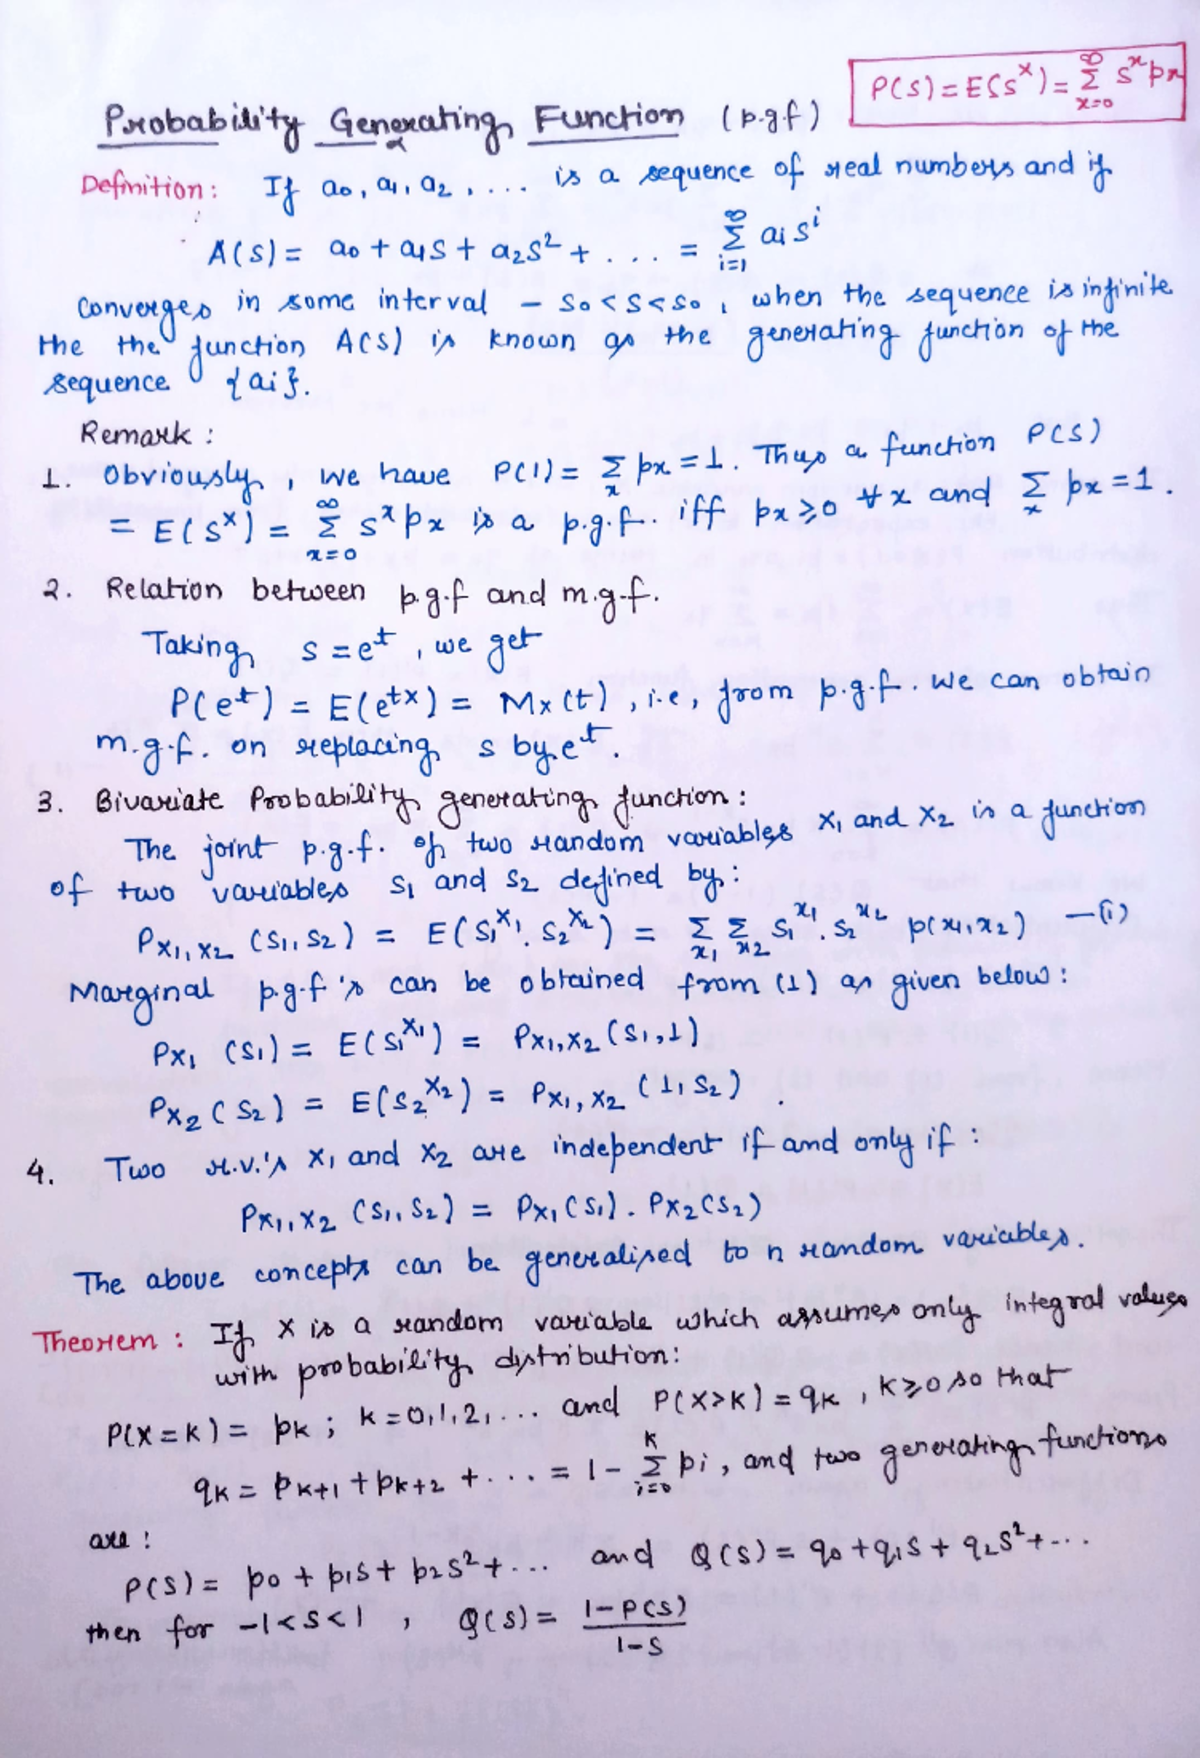 P(s) = E(s^X) = ∞Σx=0 s^x px
Probability Generating Function (p.g.f)
Definition: If a0, a1, a2, ... is a sequence of real numbers and if
A(s) = a0 + a1s + a2s² + .... = ∞Σi=1 ai s^i
converges in some interval - s0 < s < s0, when the sequence is infinite
the the function A(s) is known as the generating function of the
sequence {ai}.
Remark:
1. Obviously, we have P(1) = Σx px = 1. Thus a function P(s)
= E(s^X) = ∞Σx=0 s^x px is a p.g.f. iff px ≥ 0 ∀ x and Σx px = 1.
2. Relation between p.g.f and m.g.f.
Taking s = e^t, we get
P(e^t) = E(e^tX) = MX(t), i.e, from p.g.f. we can obtain
m.g.f. on replacing s by e^t.
3. Bivariate Probability generating function:
The joint p.g.f. of two random variables X1 and X2 is a function
of two variables s1 and s2 defined by:
PX1,X2 (s1, s2) = E(s1^X1 . s2^X2) = Σx1 Σx2 s1^x1 . s2^x2 p(x1, x2) —(i)
Marginal p.g.f's can be obtained from (1) as given below:
PX1 (s1) = E(s1^X1) = PX1,X2 (s1, 1)
PX2 (s2) = E(s2^X2) = PX1,X2 (1, s2) .
4. Two r.v.'s X1 and X2 are independent if and only if :
PX1,X2 (s1, s2) = PX1(s1) . PX2(s2)
The above concepts can be generalised to n random variables.
Theorem : If X is a random variable which assumes only integral values
with probability distribution:
P(X=K) = pK ; K=0,1,2,... and P(X>K) = qK , K≥0 so that
qK = pK+1 + pK+2 + .... = 1 - KΣi=0 pi, and two generating functions
are :
P(s) = p0 + p1s + p2s² + ... and Q(s) = q0 + q1s + q2s² + ...
then for -1<s<1 , Q(s) = (1-P(s))/(1-s)